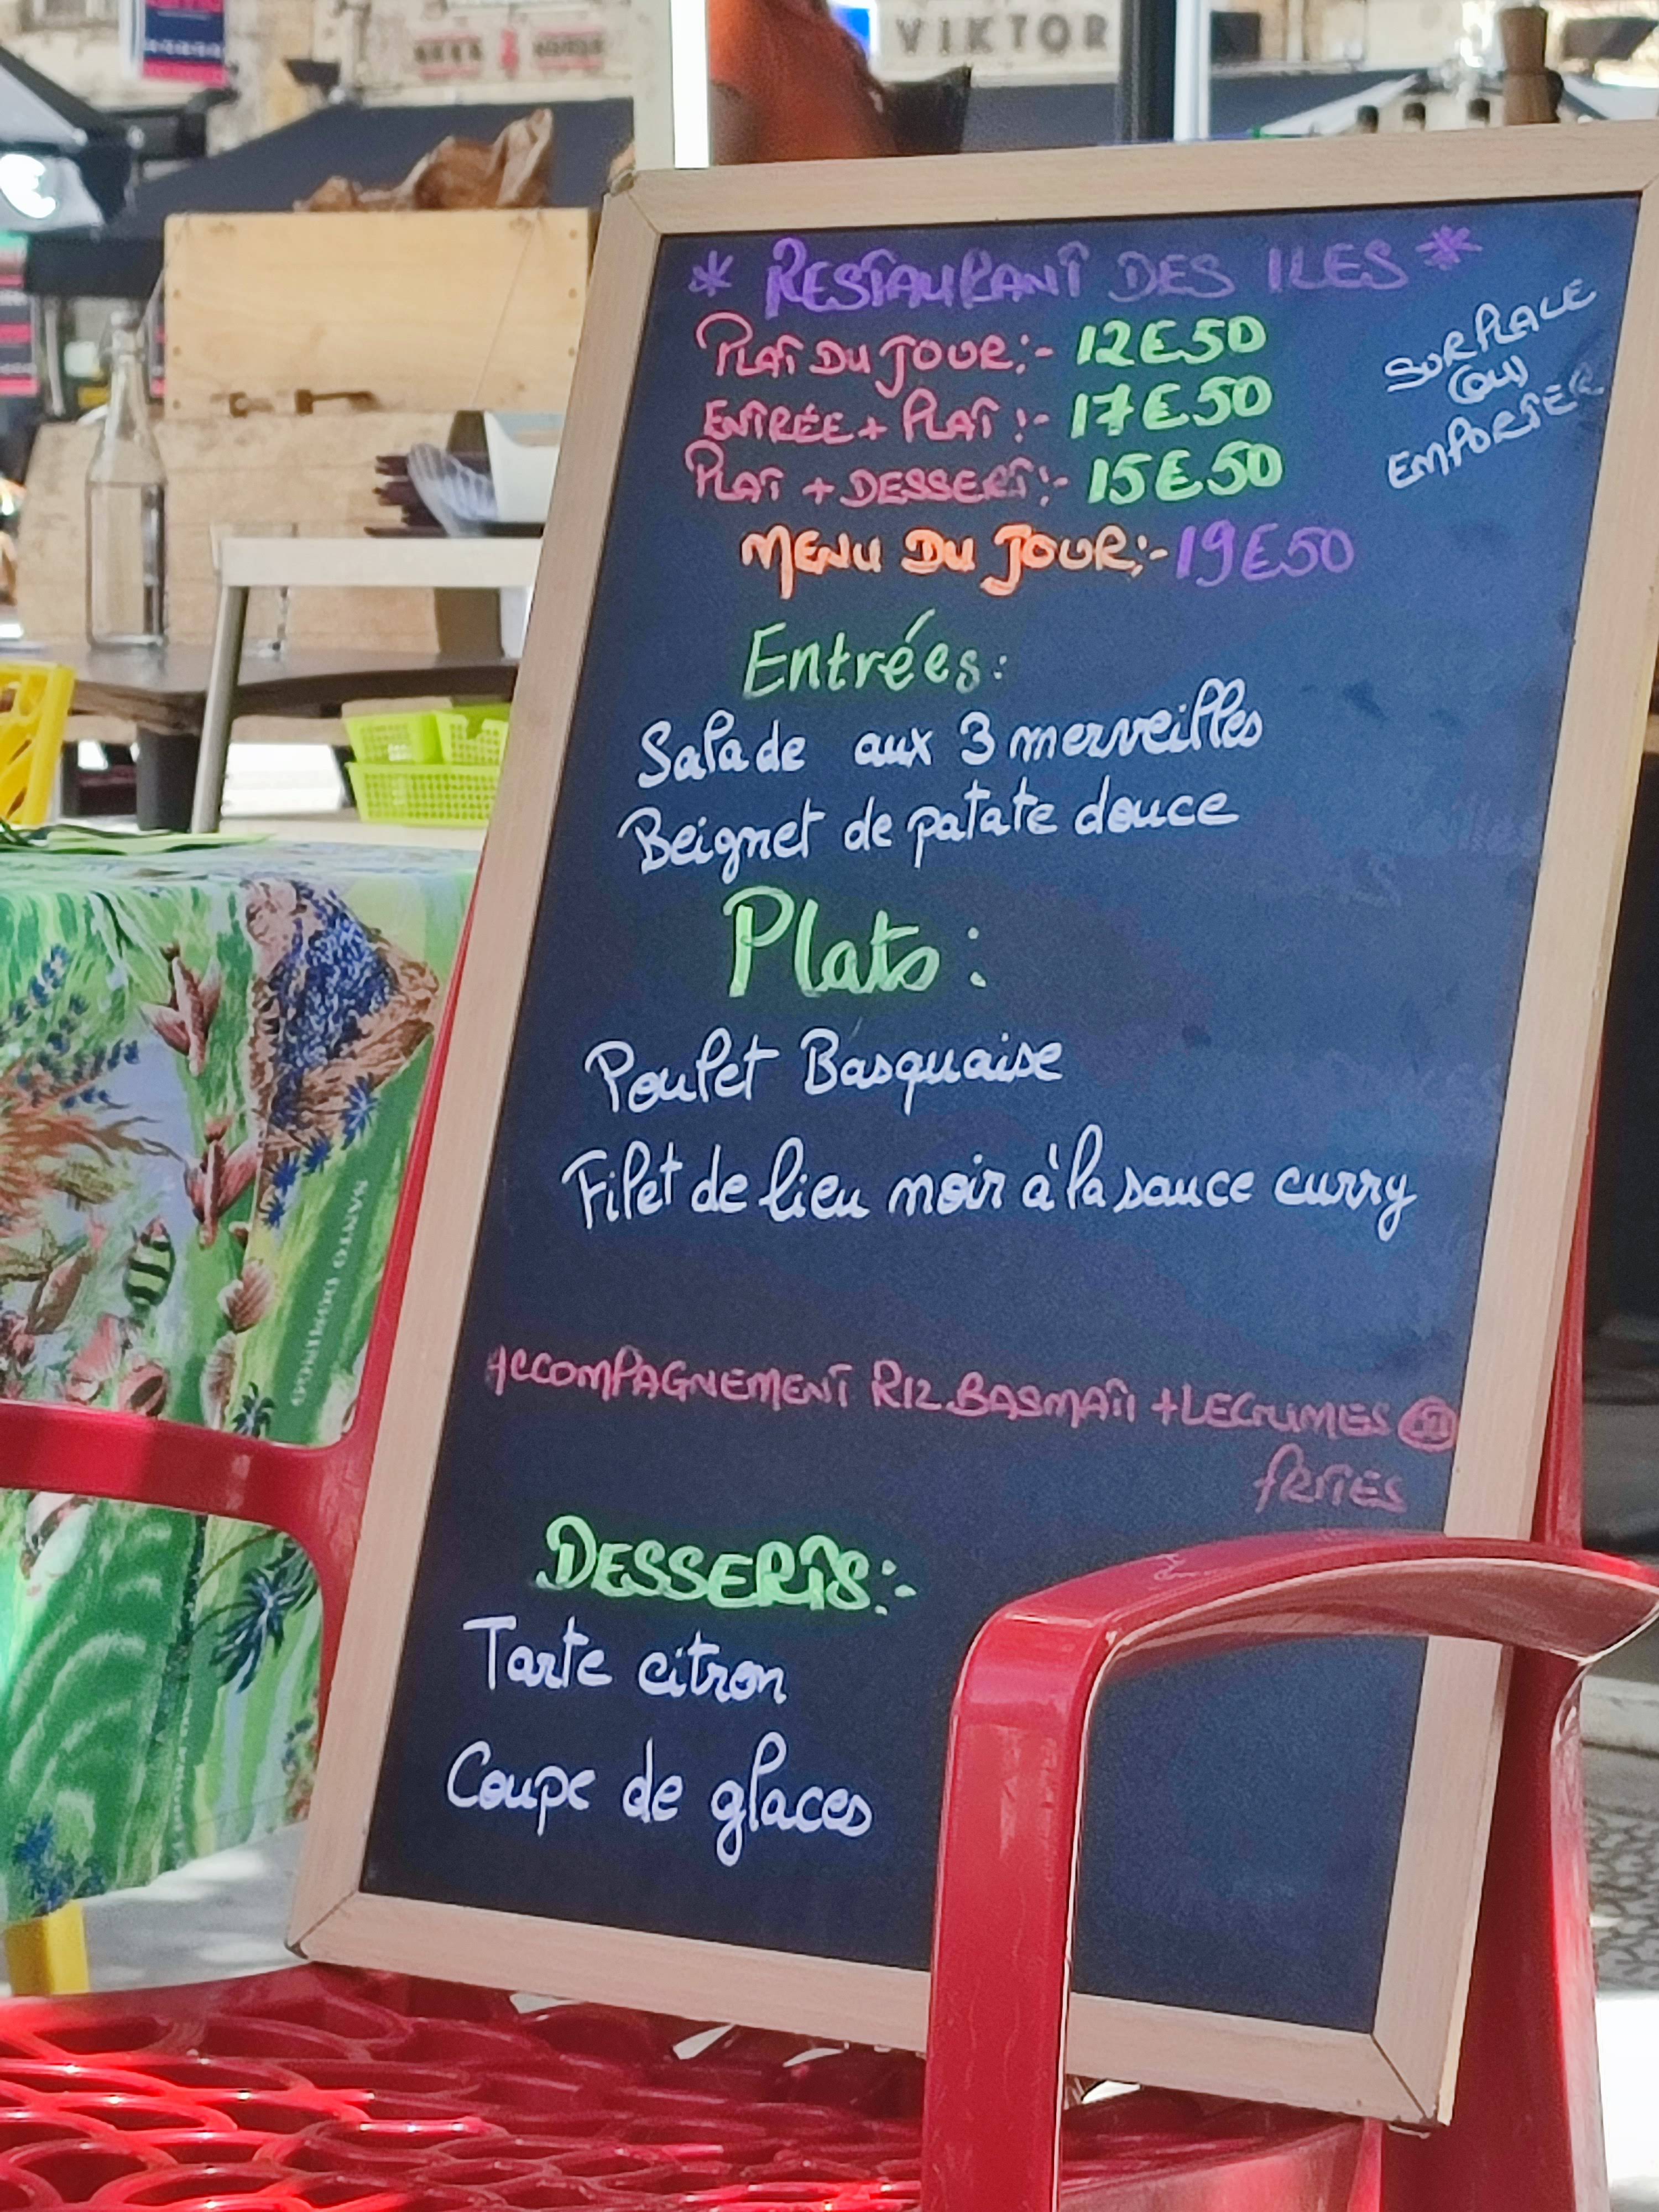 VIKTOR
* RESTAURANT DES ILES *
PLAT DU JOUR:- 12E50
ENTRÉE + PLAT :- 17E50
PLAT + DESSERT:- 15E50
SUR PLACE
(OU)
EMPORTER
MENU DU JOUR:- 19E50
Entrées:
Salade aux 3 merveilles
Beignet de patate douce
Plats:
Poulet Basquaise
Filet de lieu noir à la sauce curry
ACCOMPAGNEMENT RIZ BASMATI + LEGUMES OU
FRITES
DESSERTS:-
Tarte citron
Coupe de glaces
SANTO DOMINGO